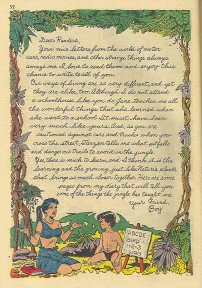 52
Dear Readers,
Your nice letters from the world of motor
cars, radio, movies, and other strange things always
amaze me. I love to read them and enjoy this
chance to write to all of you.
Our ways of living are so very different, and yet
they are alike, too. Although I do not attend
a schoolhouse, like you do, Jane teaches me all
the wonderful things that she learned when
she went to school. It must have been
very much like yours. And, as you are
cautioned against cars and trucks when you
cross the street, Tarzan tells me what pitfalls
and dangerous traits to avoid in the jungle.
Yes, there is much to learn, and I think it is the
learning and the growing, just like Nature
that brings us much closer together. Here are some
pages from my diary that will tell you
some of the things the jungle has taught me.
Your Friend,
Boy
ABCDE
BIRD
1+2=3